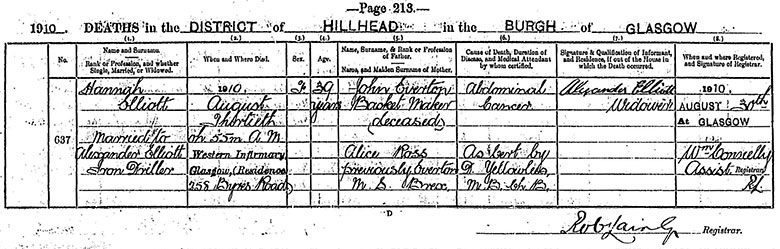 —Page 213.—
1910. DEATHS in the DISTRICT of HILLHEAD in the BURGH of GLASGOW
(1.) (2.) (3.) (4.) (5.) (6.) (7.) (8.)
No.
Name and Surname.
Rank or Profession, and whether
Single, Married, or Widowed.
When and Where Died.
Sex.
Age.
Name, Surname, & Rank or Profession
of Father.
Name, and Maiden Surname of Mother.
Cause of Death, Duration of
Disease, and Medical Attendant
by whom certified.
Signature & Qualification of Informant,
and Residence, if out of the House in
which the Death occurred.
When and where Registered,
and Signature of Registrar.
637
Hannah
Elliott
Married to
Alexander Elliott
Iron Driller
1910,
August
Thirtieth
0h. 55m. A.M.
Western Infirmary
Glasgow, (Residence
258 Byres Road)
F
39
years
John Everton
Basket Maker
(deceased)
Alice Ross
previously Everton
M.S.
Abdominal
Cancer
As Cert by
D. Yellowlees
M.B. Ch.B.
Alexander Elliott
Widower
1910.
AUGUST 30th
At GLASGOW
Wm Connelly
Assist. Registrar.
D
Registrar.